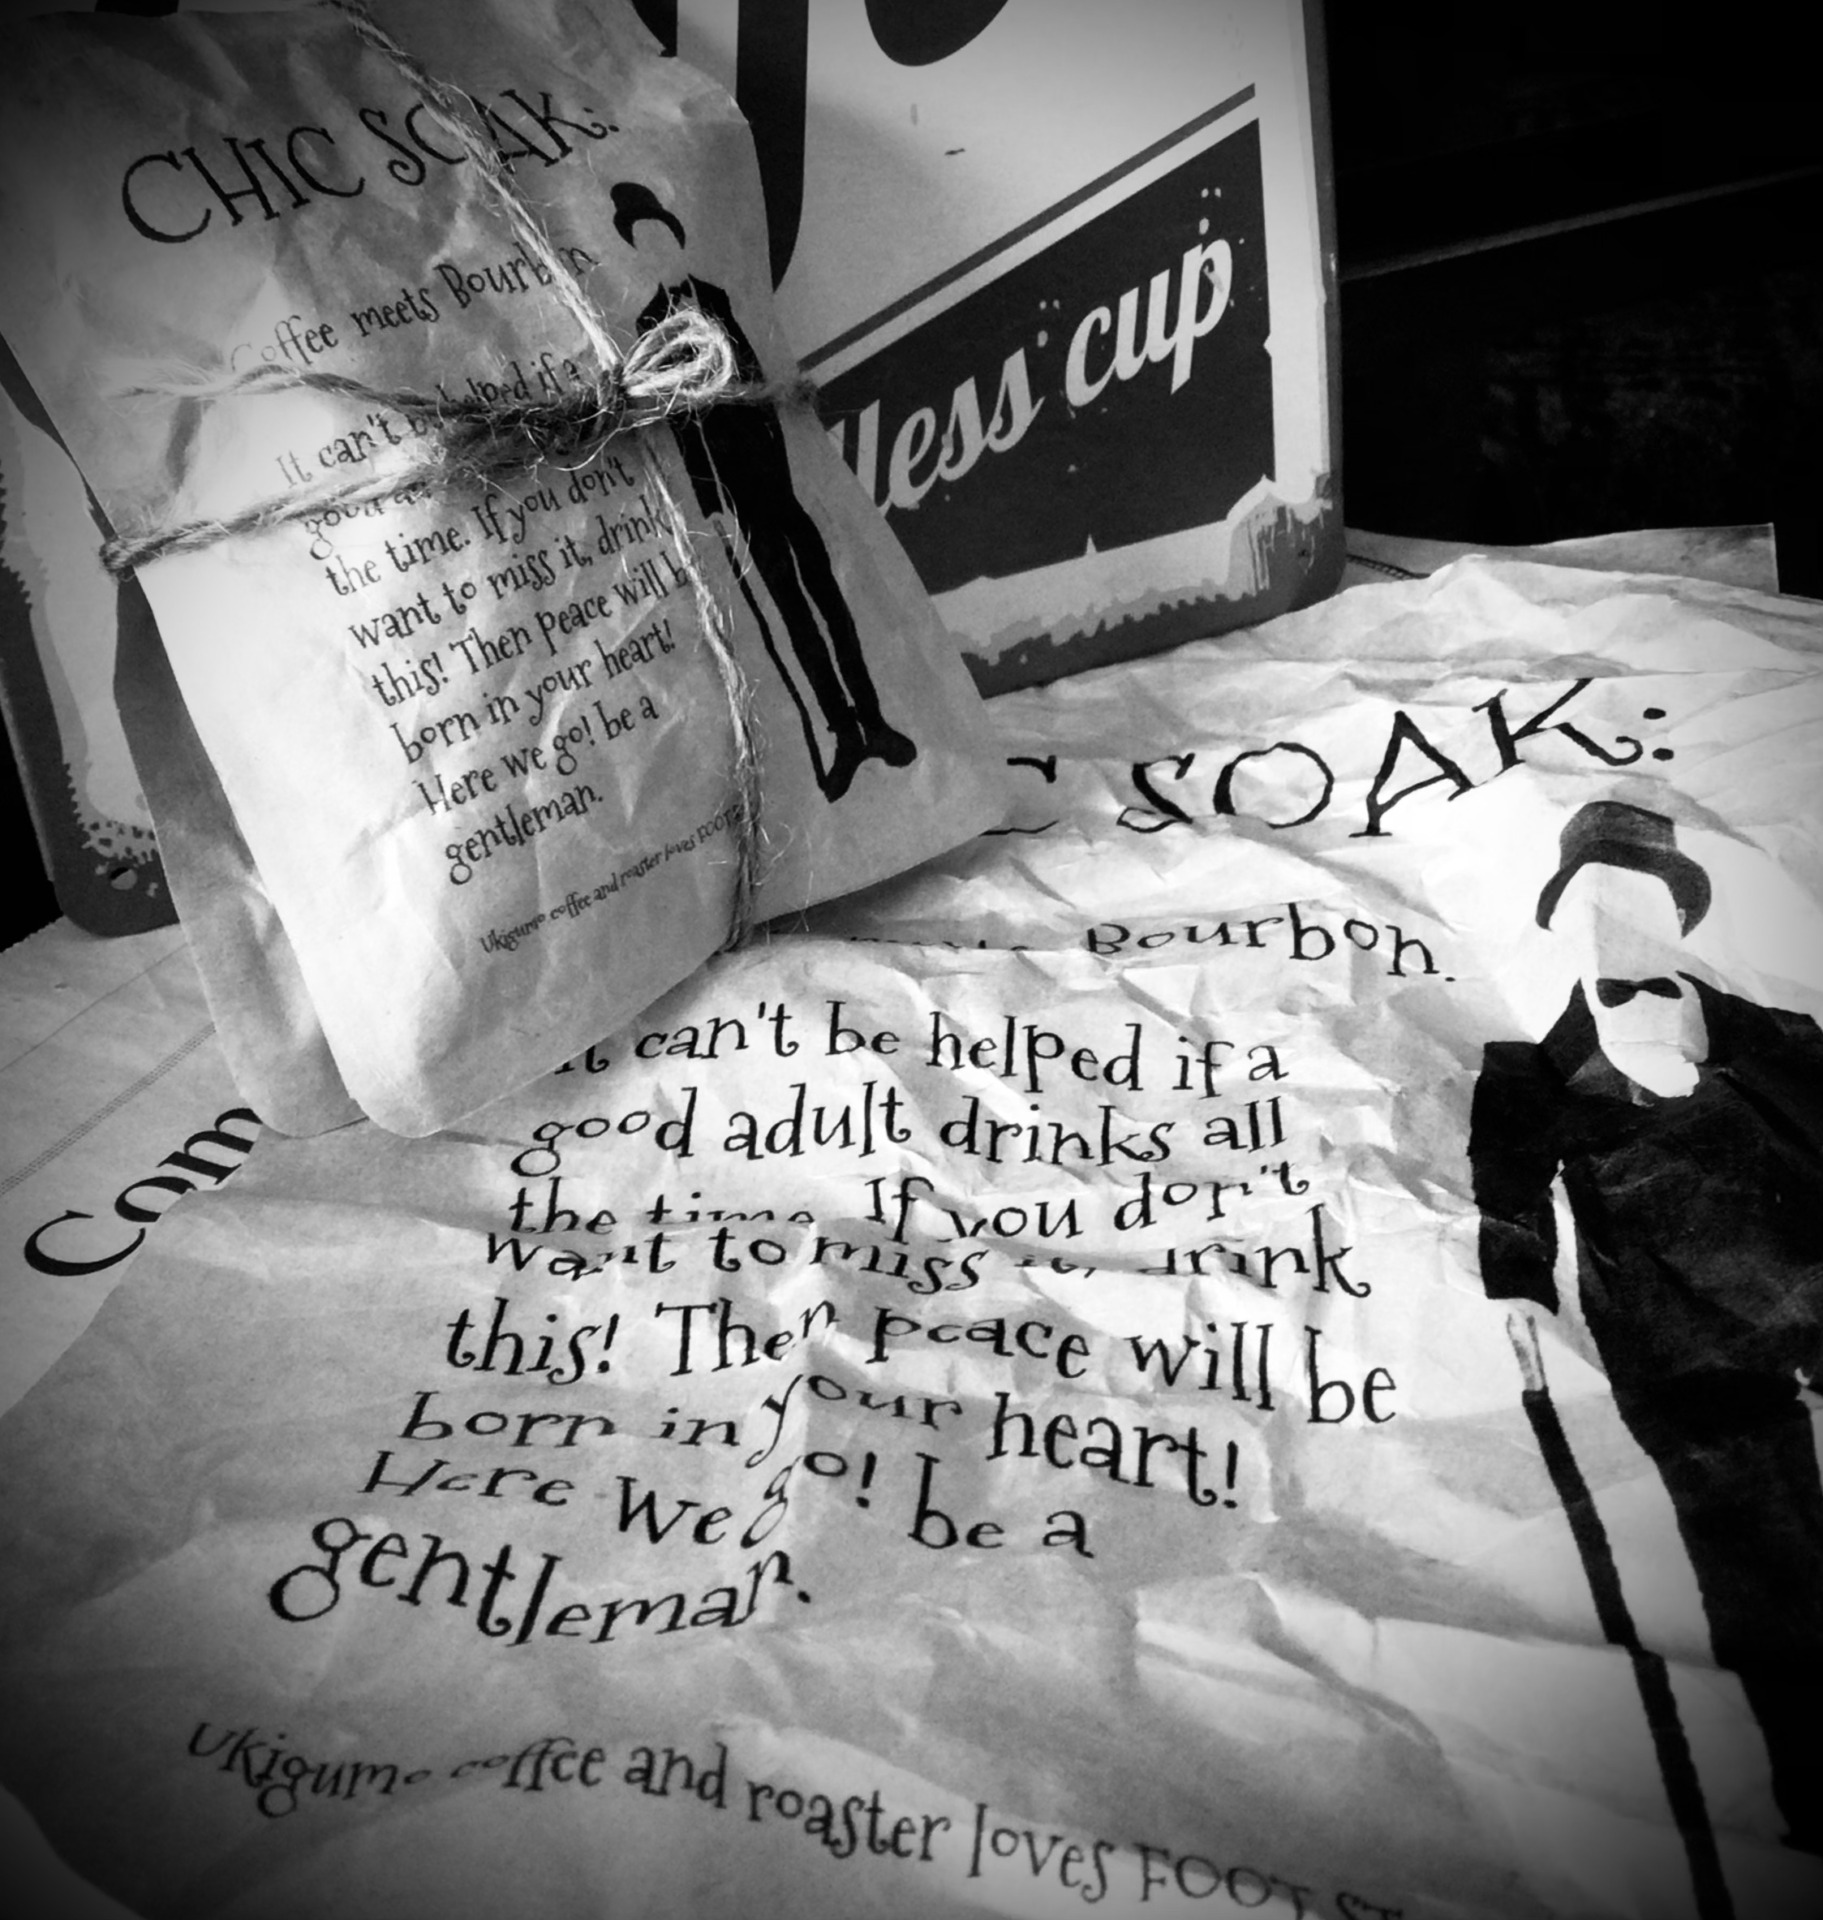 CHIC SOAK:
Coffee meets Bourbon
It can't be helped if a
good
the time. If you don't
want to miss it, drink
this! Then peace will b
born in your heart!
Here we go! be a
gentleman.
Ukigumo coffee and roaster loves FOOT
less cup
C SOAK:
Bourbon.
It can't be helped if a
good adult drinks all
the time. If you don't
want to miss it, drink
this! Then peace will be
born in your heart!
Here we go! be a
gentleman.
Ukigumo coffee and roaster loves FOOT ST
Com